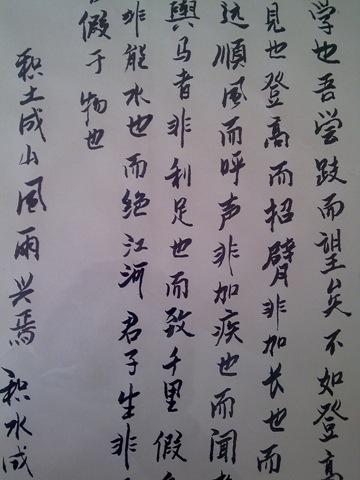 学也吾尝跂而望矣不如登高
见也登高而招臂非加长也而
远順風而呼声非加疾也而闻
輿马者非利足也而致千里假
非能水也而绝江河君子生非
假于物也
积土成山風雨兴焉积水成